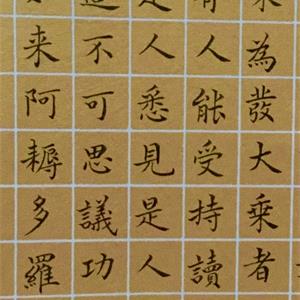 為發大乘者
有人能受持讀
是人悉見是人
邊不可思議功
来阿耨多羅